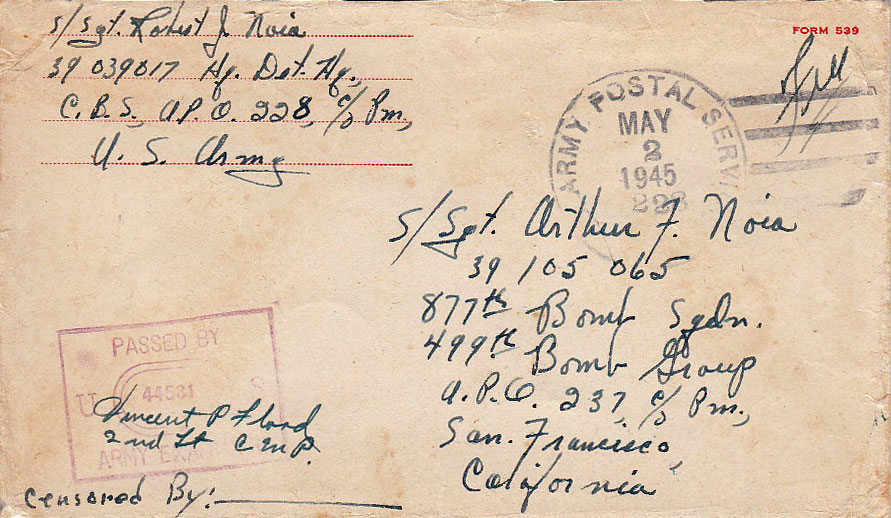 S/Sgt. Robert J. Noia
39 039017 Hq. Det. Hq.,
C.B.S., A.P.O. 228, c/o Pm,
U. S. Army
FORM 539
Free
ARMY POSTAL SERVI
MAY
2
1945
228
S/Sgt. Arthur F. Noia
39 105 065
877th Bomb Sqdn.
499th Bomb Group
A.P.O. 237, c/o Pm.,
San. Francisco,
California
PASSED BY
U S
44581
Vincent P Flood
2nd Lt C M P.
ARMY EXA
Censored By: